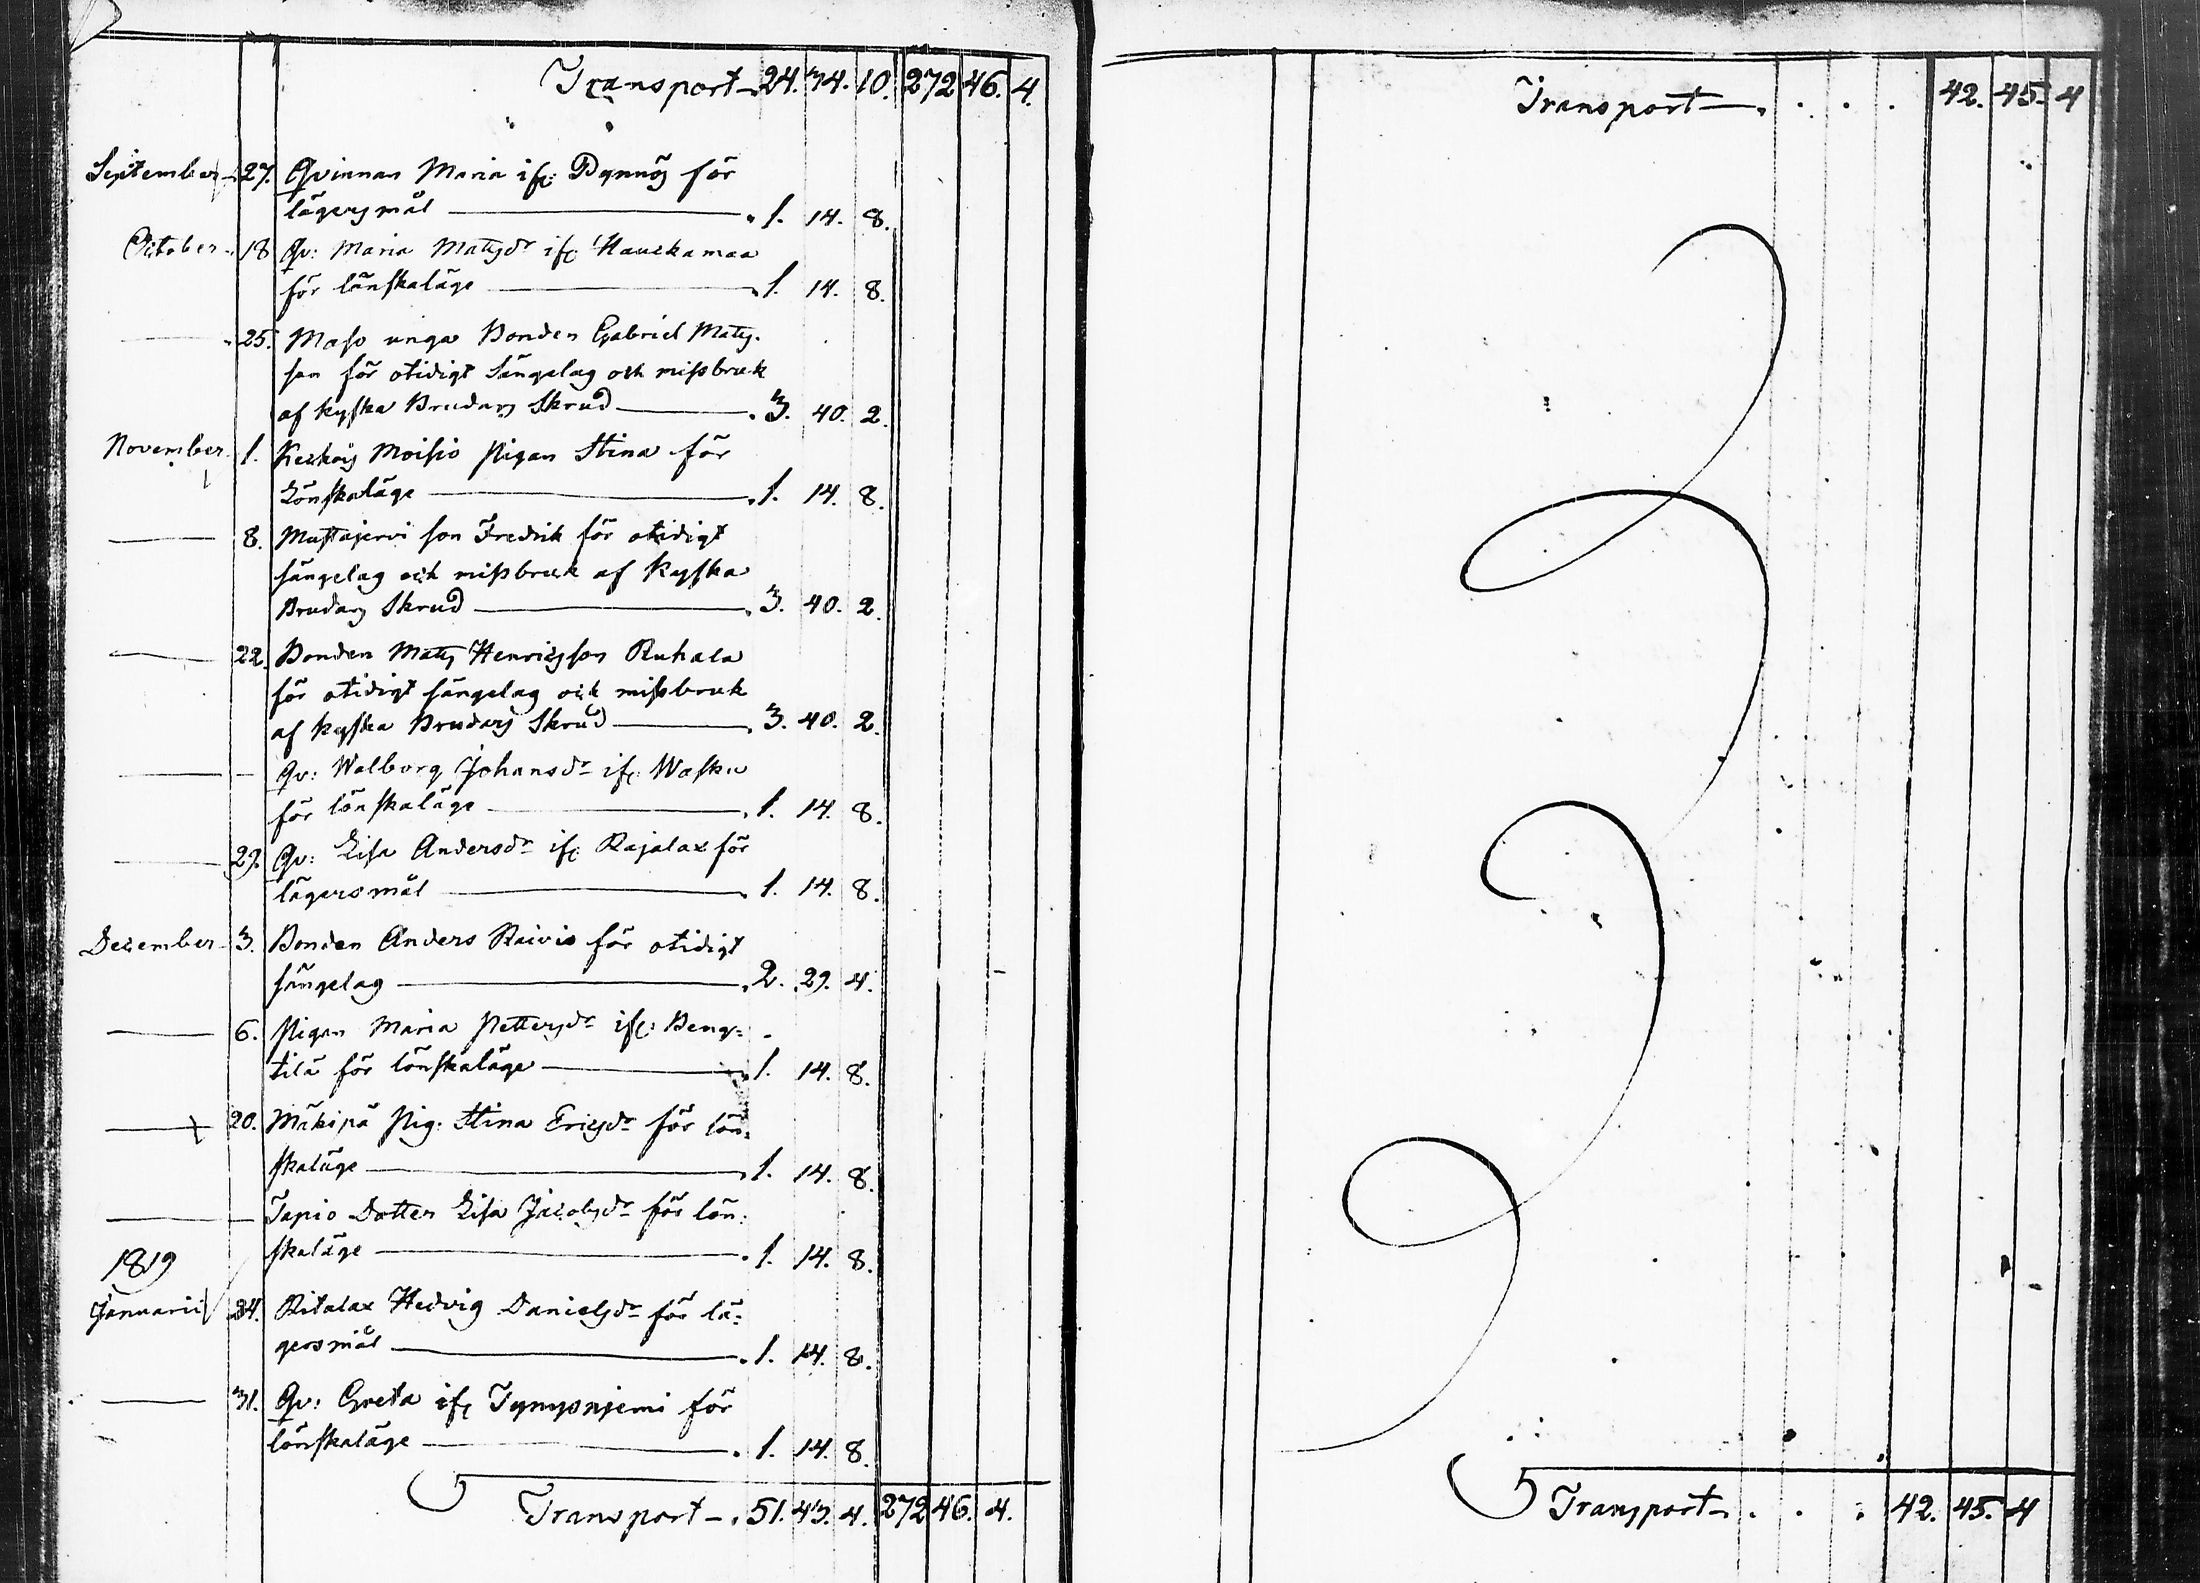 Transport 24. 34. 10. 272 46. 4.
September 27. Qvinnan Maria ifr: Dynnäs för
lägersmål 1. 14. 8.
October 18 Qv: Maria Matsdr ifr Hauskamaa
för lönskaläge 1. 14. 8.
25. Maso unga Bonden Gabriel Mats-
son för otidigt Sängelag och missbruk
af kyska Brudars Skrud 3. 40. 2.
November 1. Keskois Moisio Pigan Stina för
Lönskaläge 1. 14. 8.
8. Mustajervi son Fredrik för otidigt
sängelag och missbruk af Kyska
Brudars Skrud 3. 40. 2.
22. Bonden Mats Henricsson Ruhala
för otidigt sängelag och missbruk
af kyska Brudars Skrud 3. 40. 2.
Qv: Walborg Johansdr ifr: Waske
för lönskaläge 1. 14. 8.
29. Qv: Lisa Andersdr ifr: Rajalax för
lägersmål 1. 14. 8.
December 3. Bonden Anders Raivio för otidigt
sängelag 2. 29. 4.
6. Pigan Maria Pettersdr ifr: Beng-
tilä för lönskaläge 1. 14. 8.
20. Mäkipä Pig: Stina Ericsdr för lön-
skaläge 1. 14. 8.
Tapio Dotter Lisa Jacobsdr för lön-
skaläge 1. 14. 8.
1819
Januarii 24. Ritalax Hedvig Danielsdr för lä-
gersmål 1. 14. 8.
31. Qv: Greta ifr Tynysnjemi för
lönskaläge 1. 14. 8.
Transport 51. 43. 4. 272 46. 4.
Transport 42. 45. 4
Transport 42. 45. 4